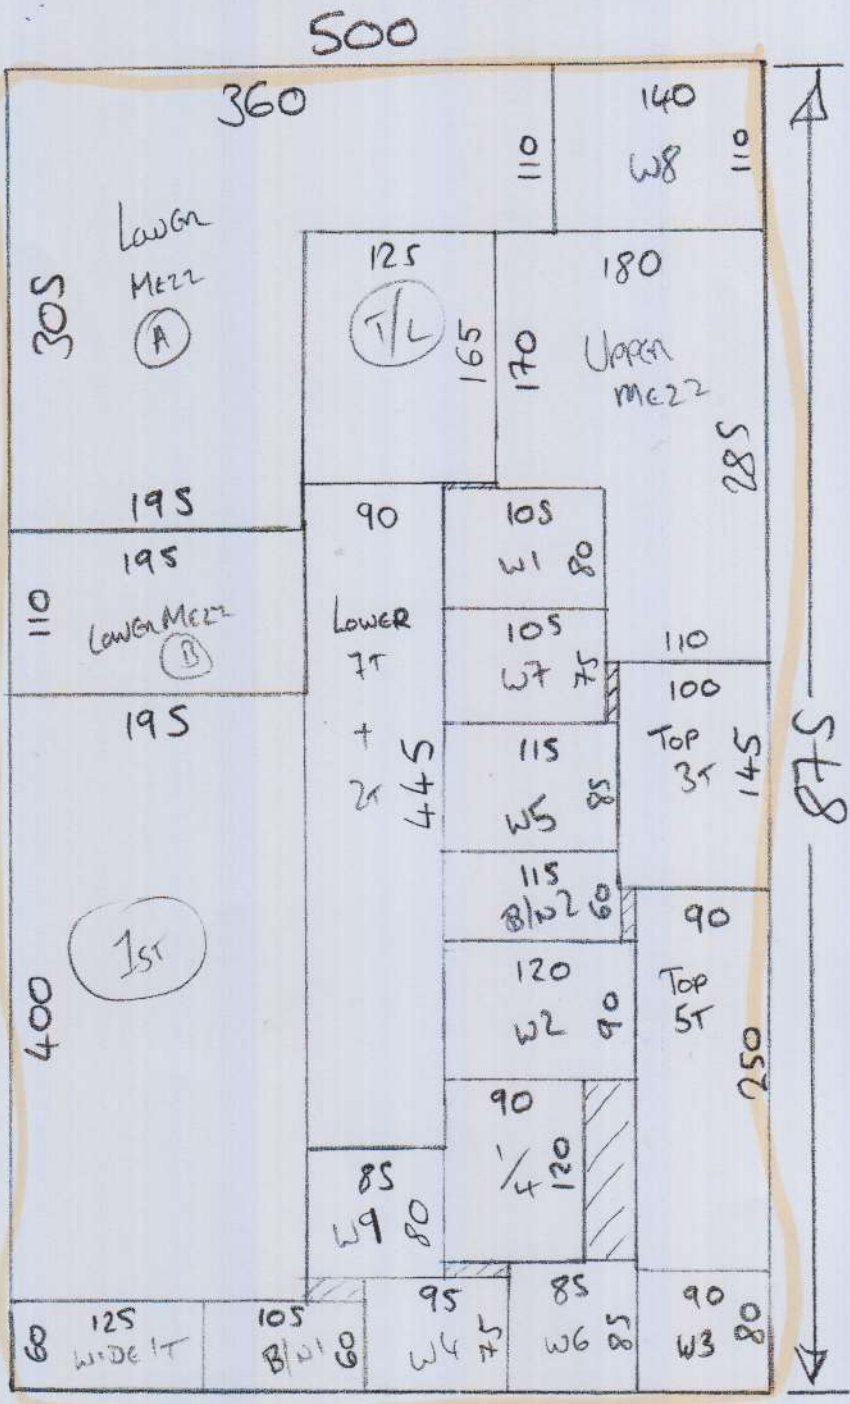 500
360
110
140
W8
110
Lower
Mezz
A
305
195
125
T/L
165
180
170
Upper
Mezz
285
110
195
110
Lower Mezz
B
90
Lower
7T
+
2T
445
105
W1
80
105
W7
75
100
Top
3T
145
875
195
1ST
400
115
W5
85
115
B/N2
60
90
Top
5T
250
120
W2
90
90
1/4
120
85
W9
80
60
125
WIDE 1T
105
B/N1
60
95
W4
75
85
W6
85
90
W3
80